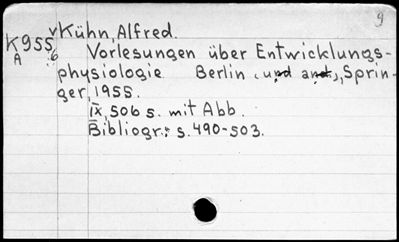 9
vKühn, Alfred.
K955
A 6
Vorlesungen über Entwicklungs-
physiologie Berlin (und and), Sprin-
ger, 1955.
IX, 506 s. mit Abb.
Bibliogr.: s. 490-503.